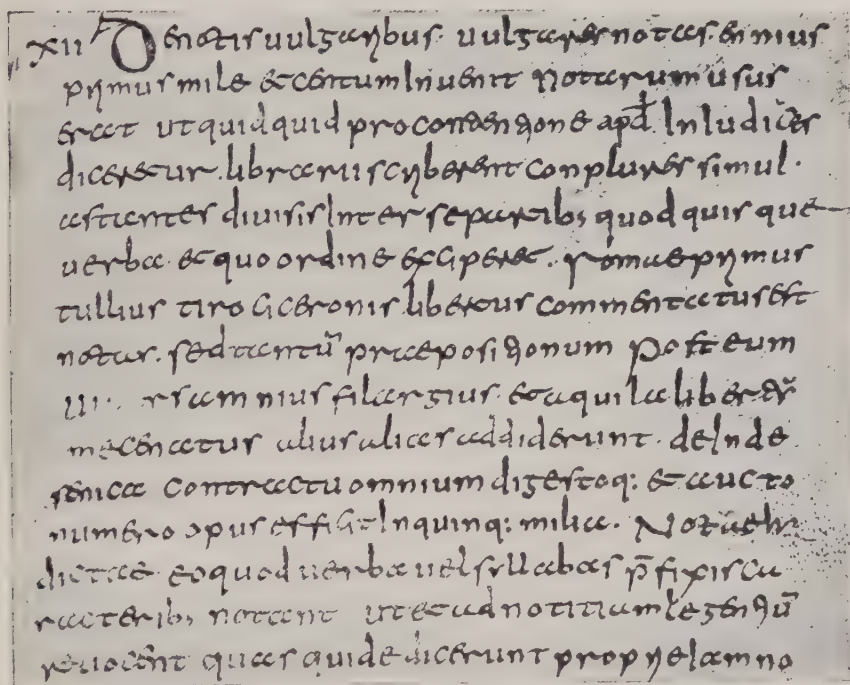 XII De notis uulgaribus. uulgares notas ennius
primus mile et centum Inuenit Notarum usus
erat ut quidquid pro contentione apđ. In Iudices
diceretur. librarii scriberent conplures simul.
astantes diuisis Inter se partibꝫ quod quisque
uerba et quo ordine exciperet. romae primus
tullius tiro ciceronis libertus commentatus est
notas. sed tantū praepositionum Post eum
III. filargius et aquila libert
mecenatus alius alias addiderunt. deInde
senica contractu omnium digestoq: et aucto
numero opus efficit In quinq: milia. Notae
dictae eo quod uerba uel syllabas p̄fixis ca
racteribꝫ notant ut et ad notitiam legentiū
reuocent quas quide dicerunt proprie Iam no